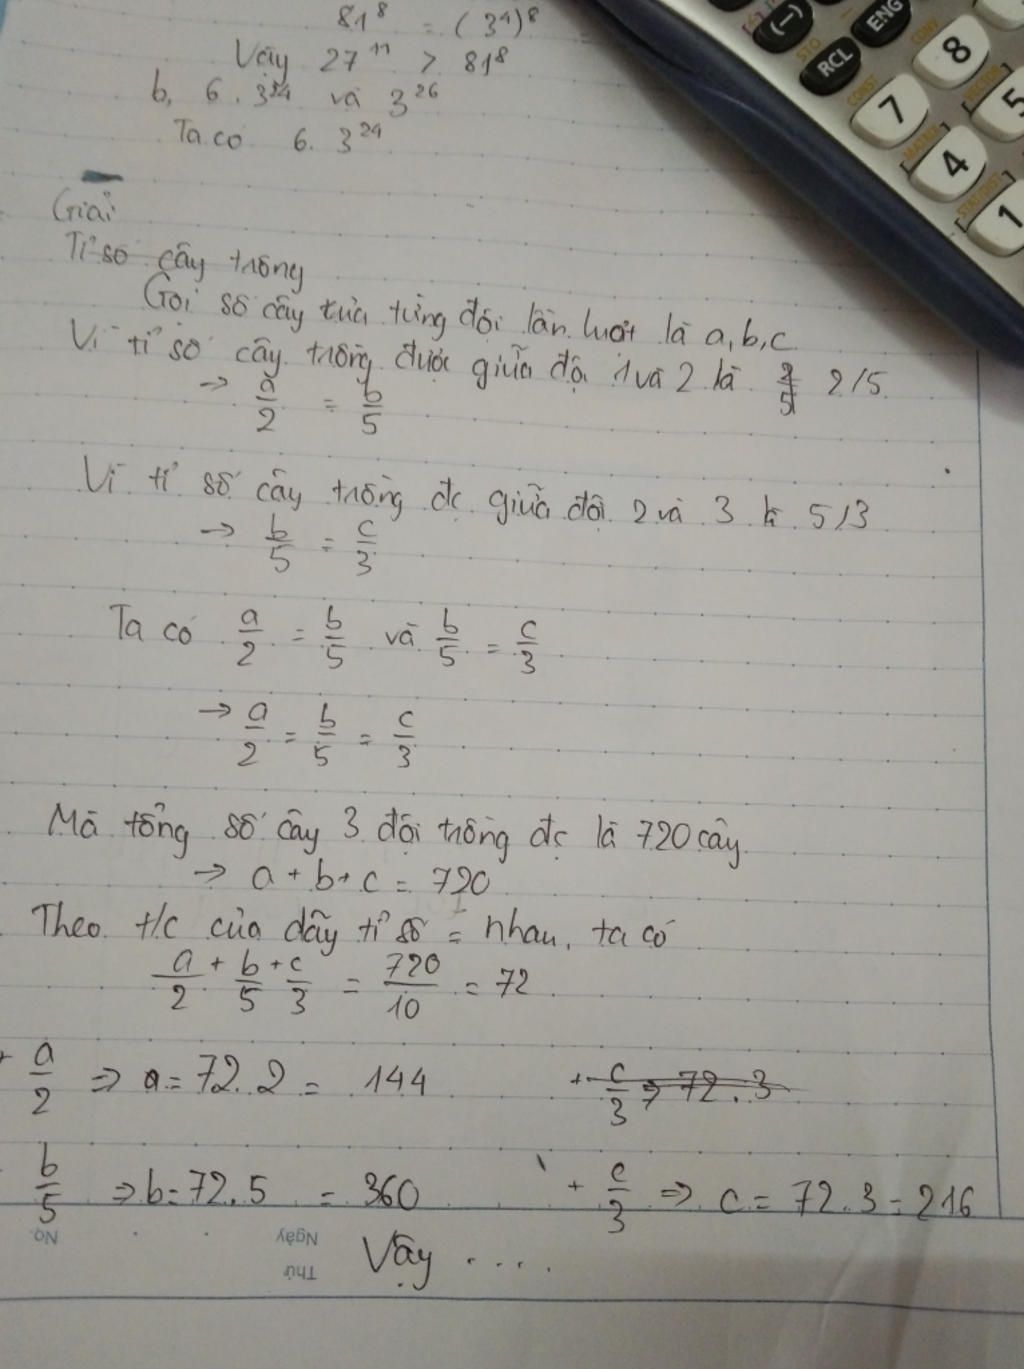 81⁸ = (3⁴)⁸
Vây 27¹¹ > 81⁸
b, 6 . 3²⁴ và 3²⁶
Ta có 6. 3²⁴
Giải
Tỉ số cây trồng
Gọi số cây của từng đội lần lượt là a, b, c
Vì tỉ số cây trồng được giữa đội 1 và 2 là 2/5
→ a/2 = b/5
Vì tỉ số cây trồng đc giữa đội 2 và 3 là 5/3
→ b/5 = c/3
Ta có a/2 = b/5 và b/5 = c/3
→ a/2 = b/5 = c/3
Mà tổng số cây 3 đội trồng đc là 720 cây
→ a + b + c = 720
Theo t/c của dãy tỉ số = nhau, ta có
a/2 + b/5 + c/3 = 720/10 = 72
+ a/2 ⇒ a = 72.2 = 144
+ c/3 ⇒ 72.3
b/5 ⇒ b = 72.5 = 360
+ c/3 ⇒ c = 72.3 = 216
Vậy ....
No.
Ngày
Thứ
(−)
STO
RCL
ENG
CONST
CONV
7
8
MATRIX
VECTOR
4
5
STATDIST
1